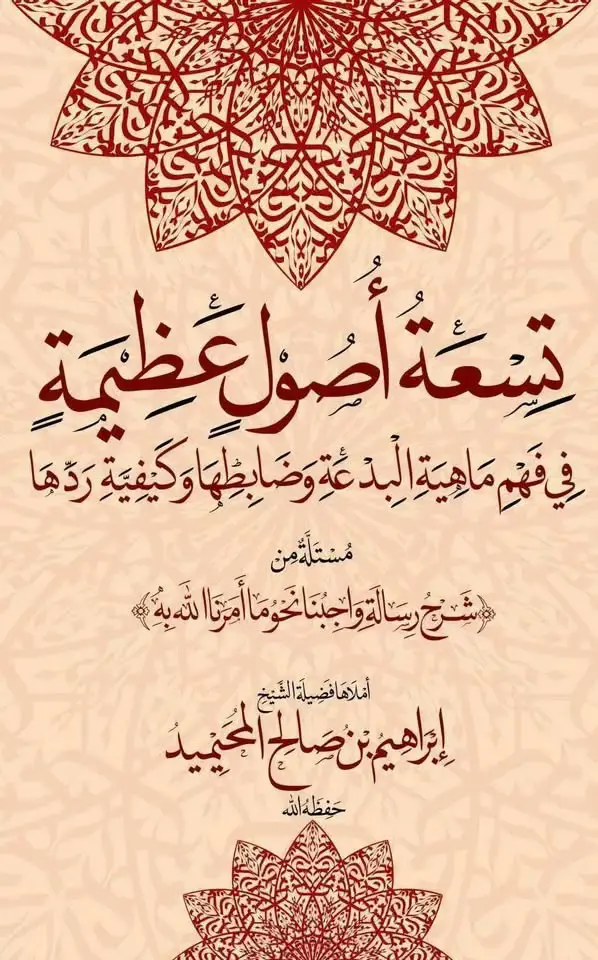 تِسْعَةُ أُصُولٍ عَظِيمَةٍ
فِي فَهْمِ مَاهِيَةِ الْبِدْعَةِ وَضَابِطِهَا وَكَيْفِيَّةِ رَدِّهَا
مُسْتَلَّةٌ مِن
﴿شَرْحُ رِسَالَةِ وَاجِبُنَا نَحْوُ مَا أَمَرَنَا اللَّه بِهِ﴾
أَمْلَاهَا فَضِيلَة الشَّيْخ
إِبْرَاهِيمُ بْنُ صَالِحٍ الْمُحَيْمِيدُ
حَفِظَهُ اللَّه